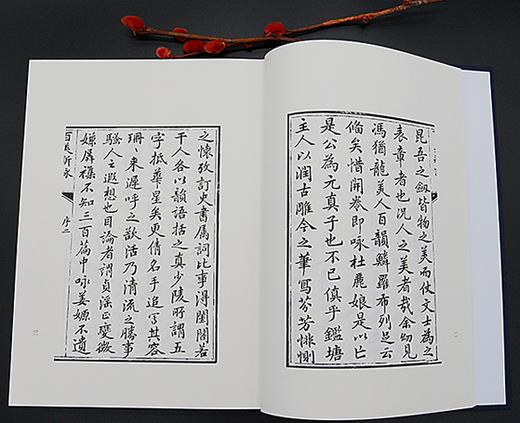 昆吾之劔皆物之美而仗文士為之
表章者也况人之美者哉余幼見
馮猶龍美人百韻鱗羅布列足云
備矣惜開卷即咏杜麗娘是以亡
是公為元真子也不已傎乎鑑塘
主人以潤古雕今之筆寫芬芳悱惻
二
之懷攷訂史書属詞比事得閨閤若
干人各以韻語括之真少陵所謂五
字抵華星矣更倩名手追寫其容
珊々來遲呼之欲活乃清流之勝事
騷人之遐想也目論者謂貞淫正變微
嫌厖襍不知三百篇中咏姜嫄不遺
百美新咏 序二
三